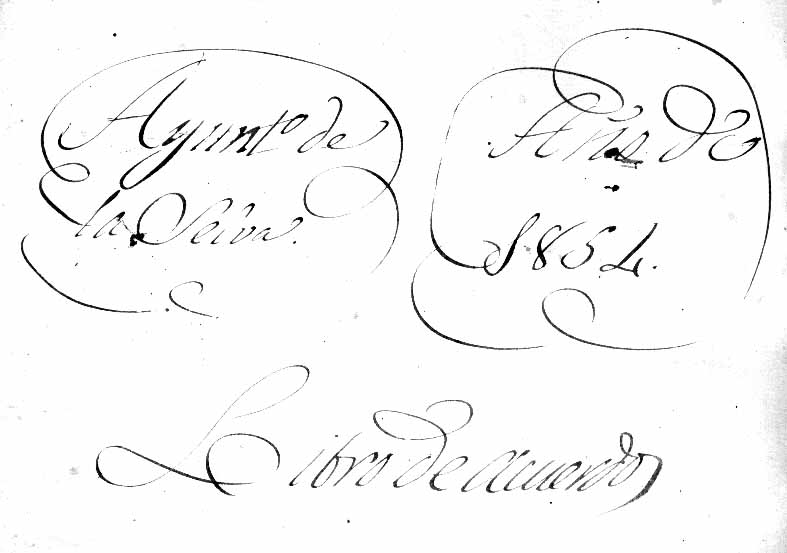 Ayunto de
la Selva.
Año de
1854.
Libro de acuerdos